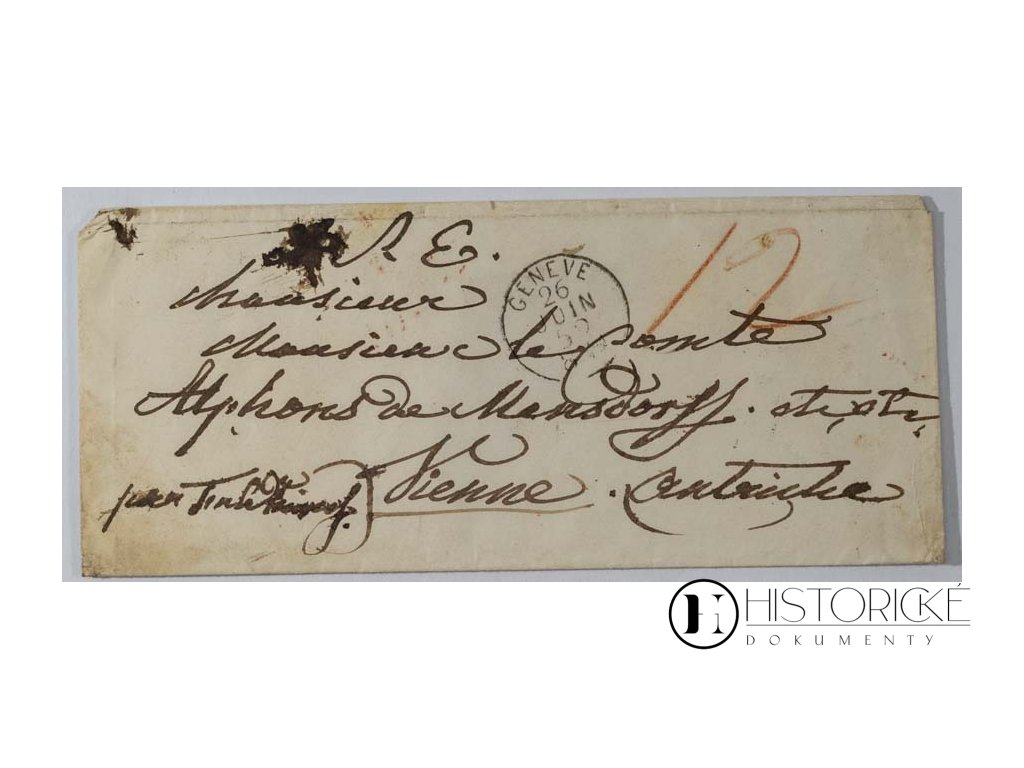 S. E.
GENEVE
26
JUIN
12
Monsieur
Monsieur le Comte
Alphons de Mensdorff. etc, etc,
Vienne. Autriche
HISTORICKÉ
DOKUMENTY